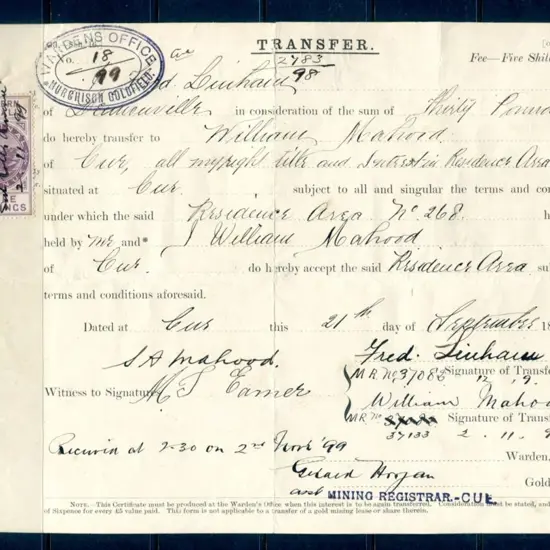 WARDENS OFFICE
No. 18
99
MURCHISON GOLDFIELD
TRANSFER.
Fee—Five Shill
2783
98
Linham
of in consideration of the sum of Thirty Pounds
do hereby transfer to William Mahood
of Cue, all my right title and Interest in Residence Area
situated at Cue subject to all and singular the terms and con
under which the said Residence Area No. 268. h
held by me and* I William Mahood
of Cue. do hereby accept the said Residence Area su
terms and conditions aforesaid.
Dated at Cue this 21th day of September 18
S A Mahood. Fred. Linham
M R No 37082 Signature of Transfe
Witness to Signature William Mahoo
M R No Signature of Transf
37133 2.11.9
Received at 2-30 on 2nd Nov '99
Warden,
Gerard Horgan Gold
asst MINING REGISTRAR.-CUE
NOTE.—This Certificate must be produced at the Warden's Office when this interest is to be again transferred. Consideration must be stated, and
of Sixpence for every £5 value paid. This form is not applicable to a transfer of a gold mining lease or share therein.